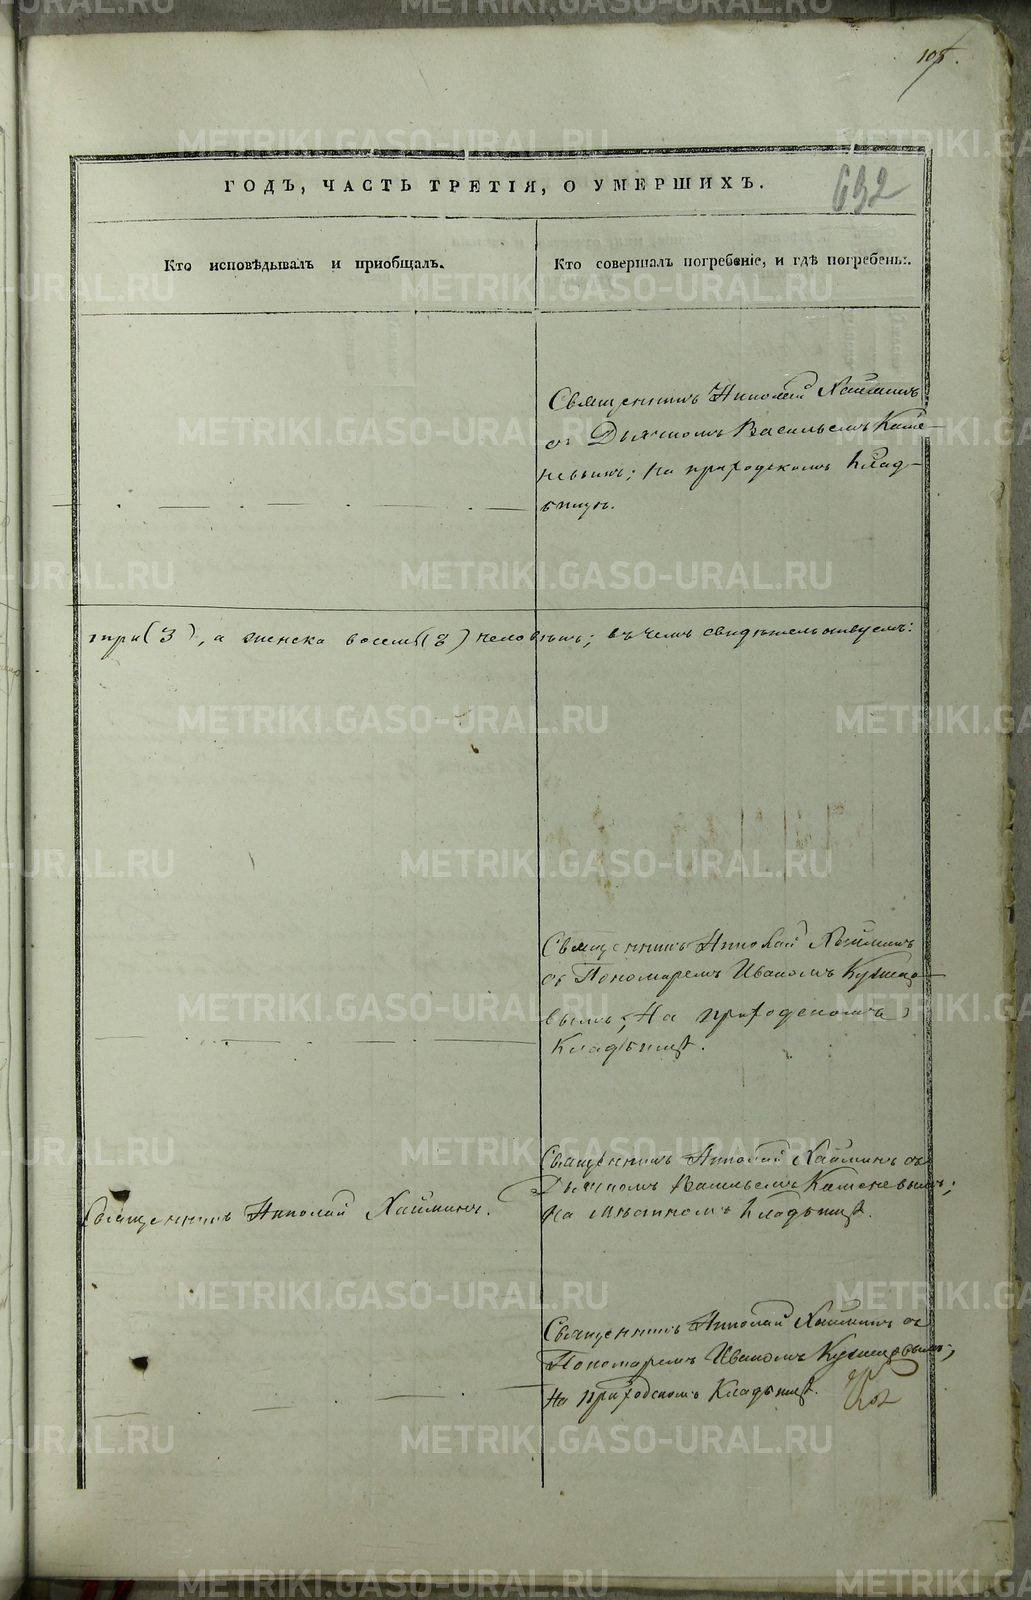 105.
ГОДЪ, ЧАСТЬ ТРЕТІЯ, О УМЕРШИХЪ.
692
Кто исповѣдывалъ и пріобщалъ.
Кто совершалъ погребеніе, и гдѣ погребены.
Священникъ Николай Хайминъ
съ Дьячкомъ Васильемъ Каме-
невымъ; на приходскомъ клад-
бищѣ.
три (3), а женска восемь (8) человѣкъ; въ чемъ свидѣтельствуемъ:
Священникъ Николай Хайминъ
съ Пономаремъ Иваномъ Кузнецо-
вымъ; на приходскомъ
Кладбищѣ.
Священникъ Николай Хайминъ съ
Дьячкомъ Васильемъ Каменевымъ;
На мѣстномъ кладбищѣ.
Священникъ Николай Хайминъ.
Священникъ Николай Хайминъ съ
Пономаремъ Иваномъ Кузнецовымъ;
На приходскомъ Кладбищѣ.
METRIKI.GASO-URAL.RU